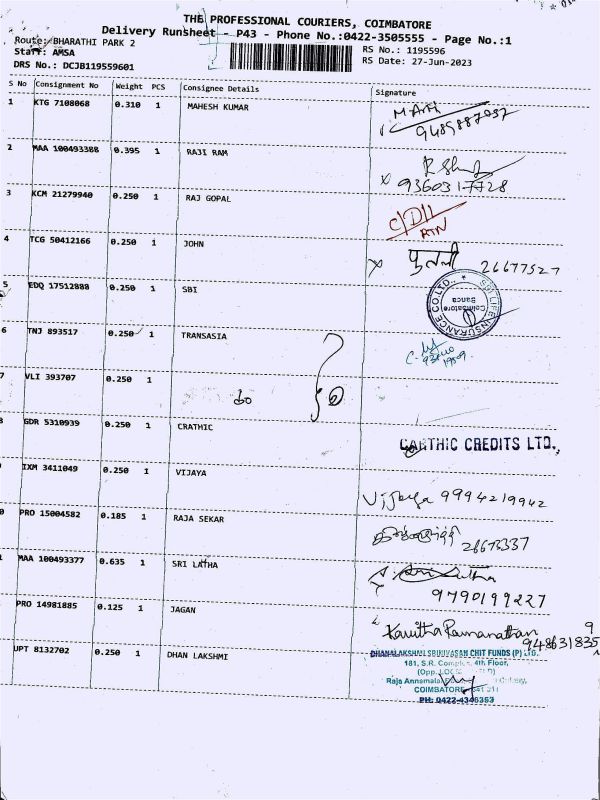 THE PROFESSIONAL COURIERS, COIMBATORE
Delivery Runsheet - P43 - Phone No.:0422-3505555 - Page No.:1
Route: BHARATHI PARK 2
RS No.: 1195596
Staff: AMSA
RS Date: 27-Jun-2023
DRS No.: DCJB119559601
S No Consignment No Weight PCS Consignee Details Signature
1 KTG 7108068 0.310 1 MAHESH KUMAR
9489887032
2 MAA 100493388 0.395 1 RAJI RAM
9360317728
3 KCM 21279940 0.250 1 RAJ GOPAL
RTN
4 TCG 50412166 0.250 1 JOHN
26677527
5 EDQ 17512888 0.250 1 SBI
SBI LIFE INSURANCE CO.LTD.,
Coimbatore
6 TNJ 893517 0.250 1 TRANSASIA
7 VLI 393707 0.250 1
GDR 5310939 0.250 1 CRATHIC
CARTHIC CREDITS LTD.,
IXM 3411049 0.250 1 VIJAYA
Vijaya 9994219942
PRO 15004582 0.185 1 RAJA SEKAR
MAA 100493377 0.635 1 SRI LATHA
9790199227
PRO 14981885 0.125 1 JAGAN
Kavitha Ramanathan
UPT 8132702 0.250 1 DHAN LAKSHMI
DHANALAKSHMI SRINIVASAN CHIT FUNDS (P) LTD.
181, S.R. 4th Floor,
(Opp.
Raja Annamalai
COIMBATORE
PH: 0422-4346353